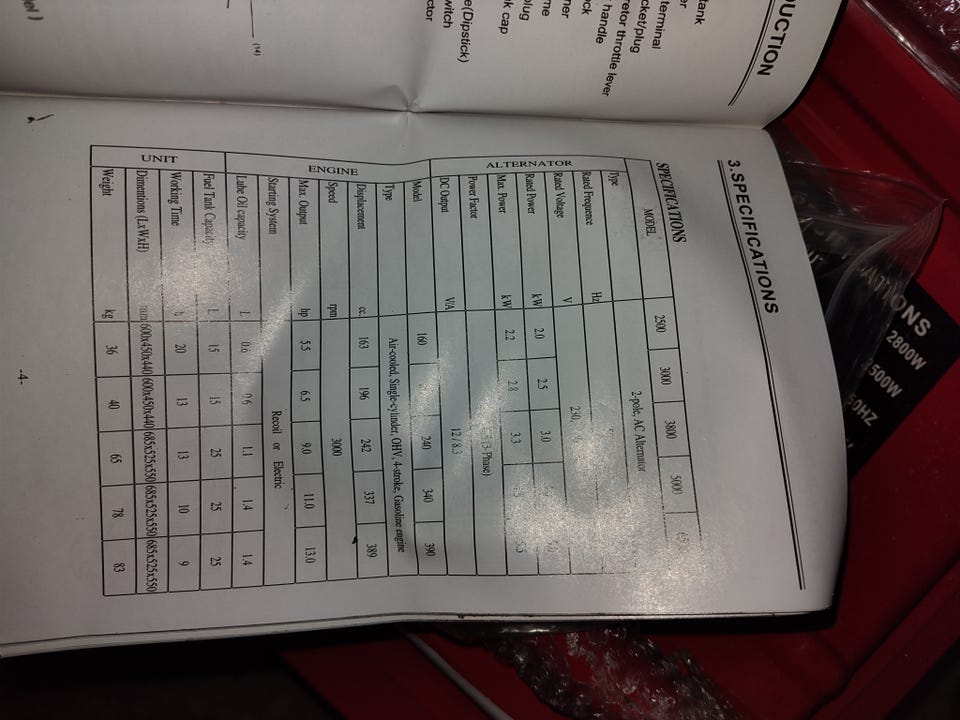 DUCTION
tank
er
terminal
cket/plug
retor throttle lever
handle
ock
ner
me
plug
nk cap
e(Dipstick)
witch
ctor
(14)
nel )
3.SPECIFICATIONS
SPECIFICATIONS
MODEL 2500 3000 3800 5000
ALTERNATOR
Type 2-pole, AC Alternator
Rated Frequence Hz
Rated Voltage V
Rated Power kW 2.0 2.5 3.0
Max. Power kW 2.2 2.8 3.3 5.5
Power Factor
DC Output V/A 12 / 8.3
ENGINE
Model 160 240 340 390
Type Air-cooled, Single-cylinder, OHV, 4-stroke, Gasoline engine
Displacement cc 163 196 242 337 389
Speed rpm 3000
Max. Output hp 5.5 6.5 9.0 11.0 13.0
Starting System Recoil or Electric
UNIT
Lube Oil capacity L 0.6 0.6 1.1 1.4 1.4
Fuel Tank Capacity L 15 15 25 25 25
Working Time h 20 13 13 10 9
Dimentions (LxWxH) mm 600x450x440 600x450x440 685x525x550 685x525x550 685x525x550
Weight kg 36 40 65 78 83
-4-
ATIONS
2800W
2500W
50HZ